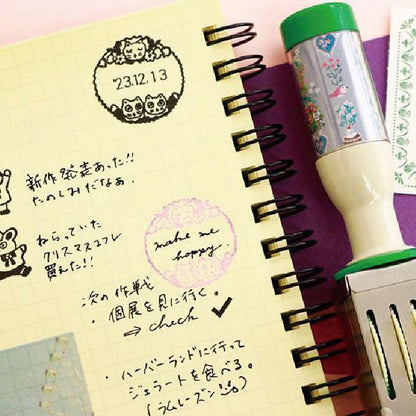 '23.12.13
新作発売あった!!
たのしみだなぁ.
ねらっていた
クリスマスコフレ
買えた!!
make me
happy.
次の作戦
・個展を見に行く。
⇒ check ✓
・ハーバーランドに行って
ジェラートを食べる。
(ラムレーズン)